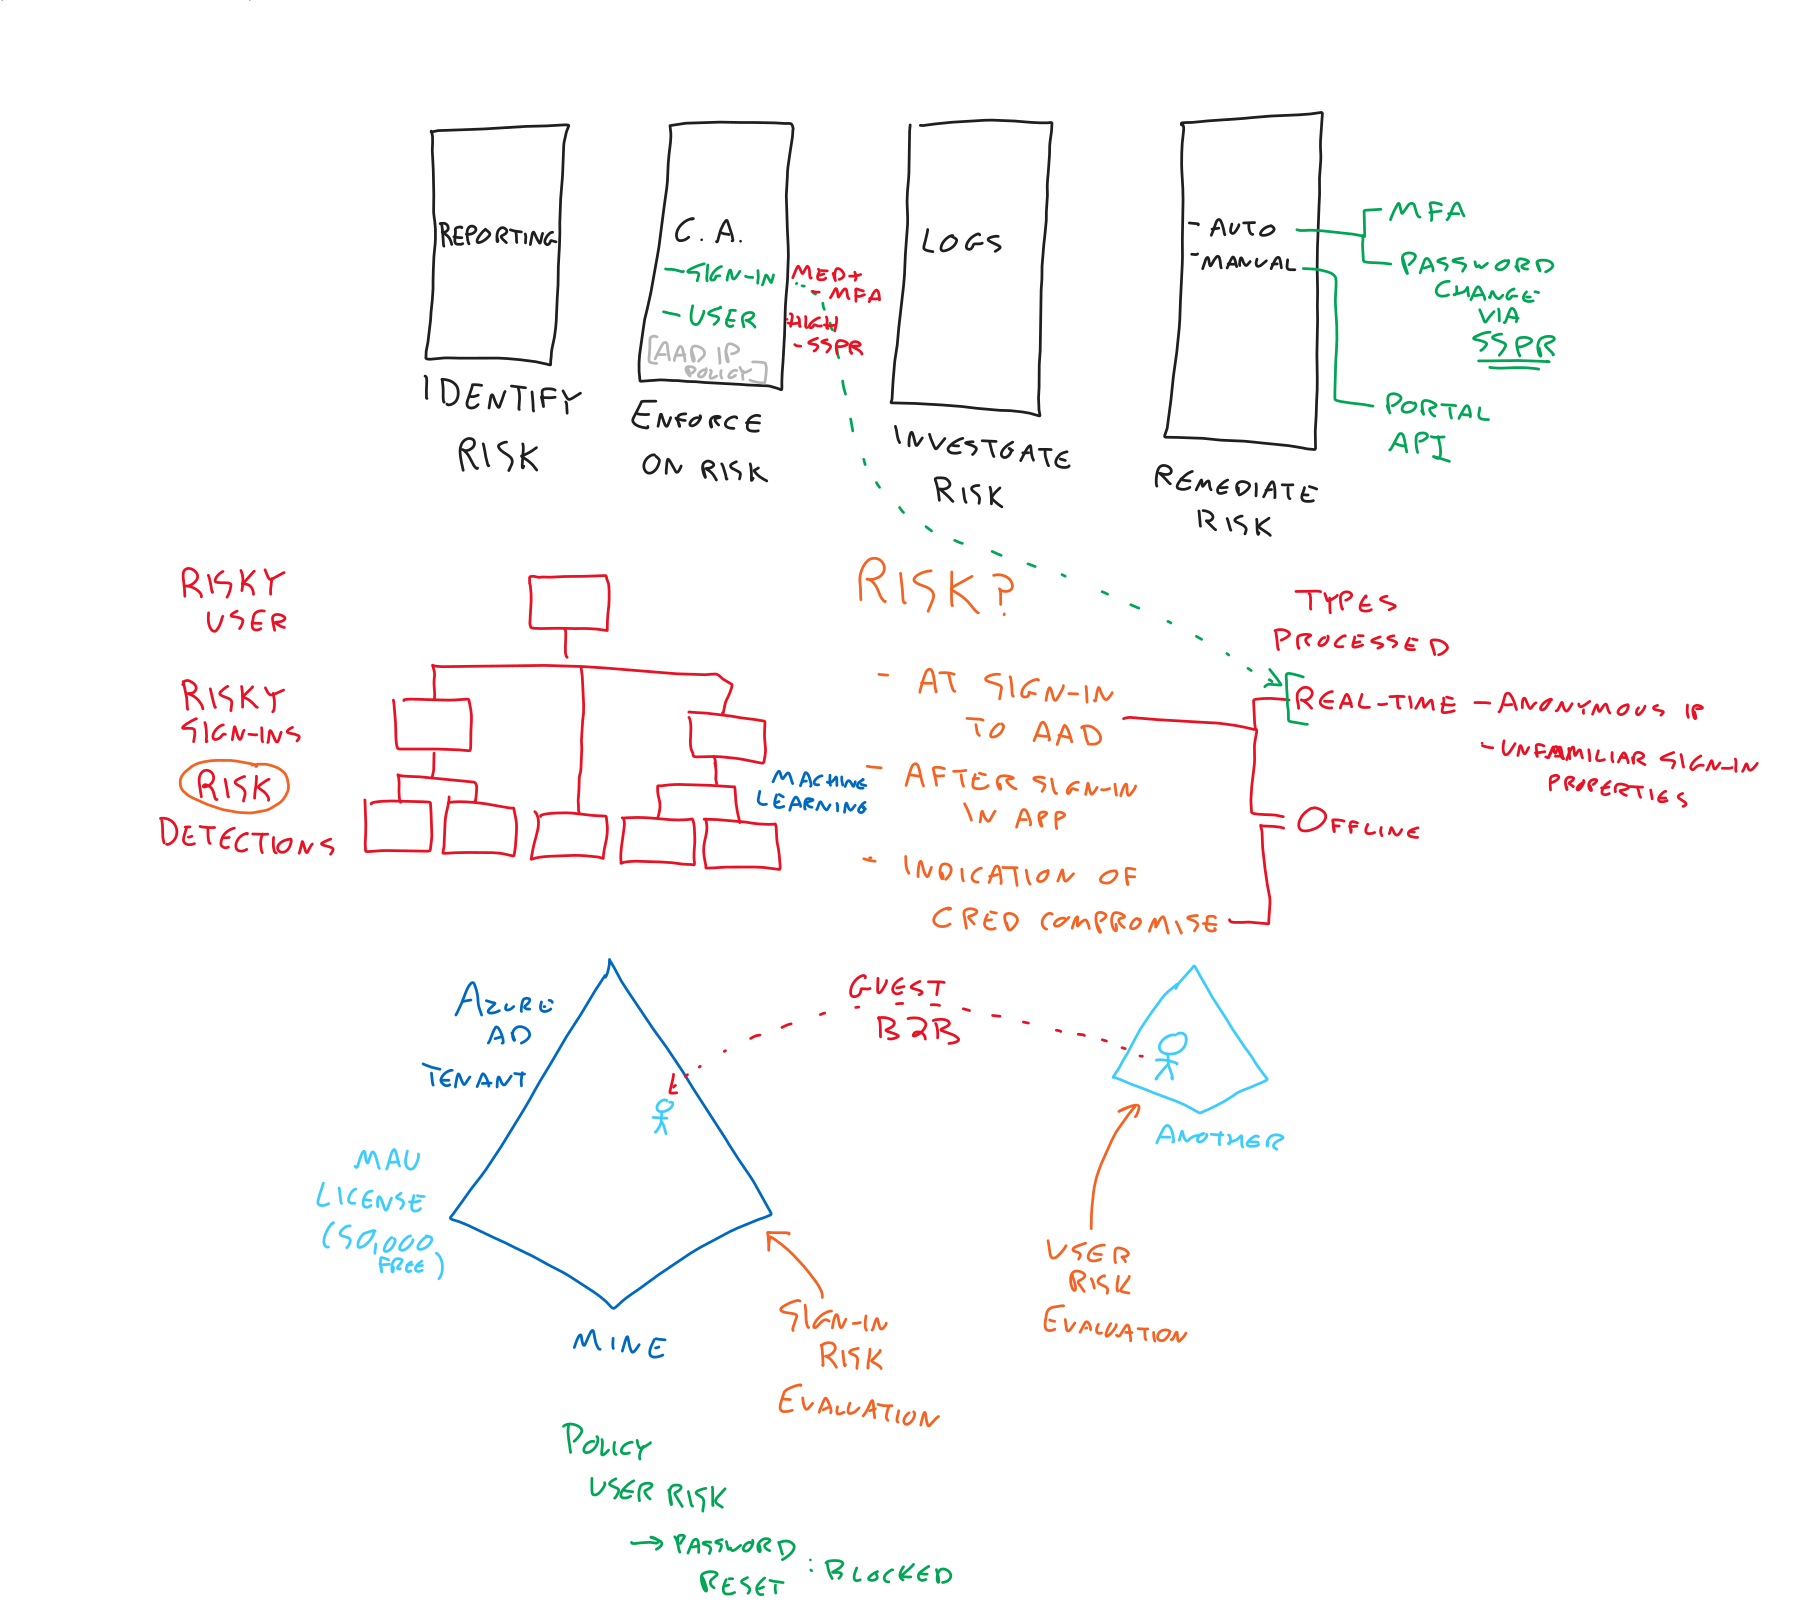 REPORTING
IDENTIFY
RISK
C.A.
-SIGN-IN
MED+
- MFA
- USER
HIGH
-SSPR
[AAD IP
POLICY]
ENFORCE
ON RISK
LOGS
INVESTGATE
RISK
- AUTO
-MANUAL
REMEDIATE
RISK
MFA
PASSWORD
CHANGE
VIA
SSPR
PORTAL
API
RISKY
USER
RISKY
SIGN-INS
RISK
DETECTIONS
MACHINE
LEARNING
RISK?
- AT SIGN-IN
TO AAD
- AFTER SIGN-IN
IN APP
- INDICATION OF
CRED COMPROMISE
TYPES
PROCESSED
REAL-TIME - ANONYMOUS IP
- UNFAMILIAR SIGN-IN
PROPERTIES
OFFLINE
AZURE
AD
TENANT
MAU
LICENSE
(50,000
FREE)
MINE
GUEST
B2B
ANOTHER
SIGN-IN
RISK
EVALUATION
USER
RISK
EVALUATION
POLICY
USER RISK
→ PASSWORD
RESET : BLOCKED